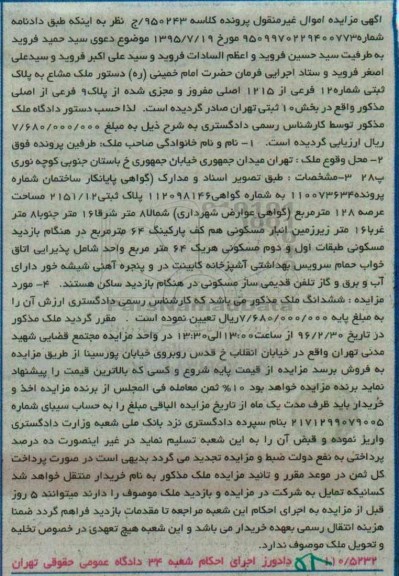 آگهی مزایده اموال غیرمنقول پرونده کلاسه ۹۵۰۲۴۳/ج نظر به اینکه طبق دادنامه
شماره۹۵۰۹۹۷۰۲۲۹۴۰۰۷۷۳ مورخ ۱۳۹۵/۷/۱۹ موضوع دعوی سید حمید فروید
به طرفیت سید حسین فروید و اعظم السادات فروید و سید علی اکبر فروید و سیدعلی
اصغر فروید و ستاد اجرایی فرمان حضرت امام خمینی (ره) دستور ملک مشاع به پلاک
ثبتی شماره۱۲ فرعی از ۱۲۱۵ اصلی مفروز و مجزی شده از پلاک۹ فرعی از اصلی
مذکور واقع در بخش۱۰ ثبتی تهران صادر گردیده است. لذا حسب دستور دادگاه ملک
مذکور توسط کارشناس رسمی دادگستری به شرح ذیل به مبلغ ۷/۶۸۰/۰۰۰/۰۰۰
ریال ارزیابی گردیده است. ۱- نام و نام خانوادگی صاحب ملک: طرفین پرونده فوق
۲- محل وقوع ملک : تهران میدان جمهوری خیابان جمهوری خ باستان جنوبی کوچه نوری
پ۲۸ ۳-مشخصات : طبق تصویر اسناد و مدارک (گواهی پایانکار ساختمان شماره
پرونده۱۱۰۰۷۳۶۳۴ به شماره گواهی۱۱۲۰۹۸۱۴۶ پلاک ثبتی۲۱۵۱/۱۲ مساحت
عرصه ۱۲۸ مترمربع (گواهی عوارض شهرداری) شمالا۸ متر شرقا۱۶ متر جنوبا۸ متر
غربا۱۶ متر زیرزمین انبار مسکونی هم کف پارکینگ ۶۴ مترمربع در هنگام بازدید
مسکونی طبقات اول و دوم مسکونی هریک ۶۴ متر مربع واحد شامل پذیرایی اتاق
خواب حمام سرویس بهداشتی آشپزخانه کابینت در و پنجره آهنی شیشه خور دارای
آب و برق و گاز تلفن قدیمی ساز مسکونی در هنگام بازدید ساکن هستند. ۴- مورد
مزایده : ششدانگ ملک مذکور می باشد که کارشناس رسمی دادگستری ارزش آن را
به مبلغ پایه ۷/۶۸۰/۰۰۰/۰۰۰ریال تعیین نموده است . مقرر گردید ملک مذکور
در تاریخ ۹۶/۲/۳۰ از ساعت۱۳:۰۰الی۱۳:۳۰ در واحد مزایده مجتمع قضایی شهید
مدنی تهران واقع در خیابان انقلاب خ قدس روبروی خیابان پورسینا از طریق مزایده
به فروش برسد مزایده از قیمت پایه شروع و کسی که بالاترین قیمت را پیشنهاد
نماید برنده مزایده خواهد بود ۱۰% ثمن معامله فی المجلس از برنده مزایده اخذ و
خریدار باید ظرف مدت یک ماه از تاریخ مزایده الباقی مبلغ را به حساب سیبای شماره
۲۱۷۱۲۹۹۰۷۹۰۰۵ بنام سپرده دادگستری نزد بانک ملی شعبه وزارت دادگستری
واریز نموده و قبض آن را به این شعبه تسلیم نماید در غیر اینصورت ده درصد
پرداختی به نفع دولت ضبط و مزایده تجدید می گردد بدیهی است در صورت پرداخت
کل ثمن در موعد مقرر و تائید مزایده ملک مذکور به نام خریدار منتقل خواهد شد
کسانیکه تمایل به شرکت در مزایده و بازدید ملک موصوف را دارند میتوانند ۵ روز
قبل از مزایده به اجرای احکام این شعبه مراجعه تا مقدمات بازدید فراهم گردد ضمنا
هزینه انتقال رسمی بعهده خریدار می باشد و این شعبه هیچ تعهدی در خصوص تخلیه
و تحویل ملک موصوف ندارد.
۱۱۰/۵۲۳۲ دادورز اجرای احکام شعبه ۳۴ دادگاه عمومی حقوقی تهران